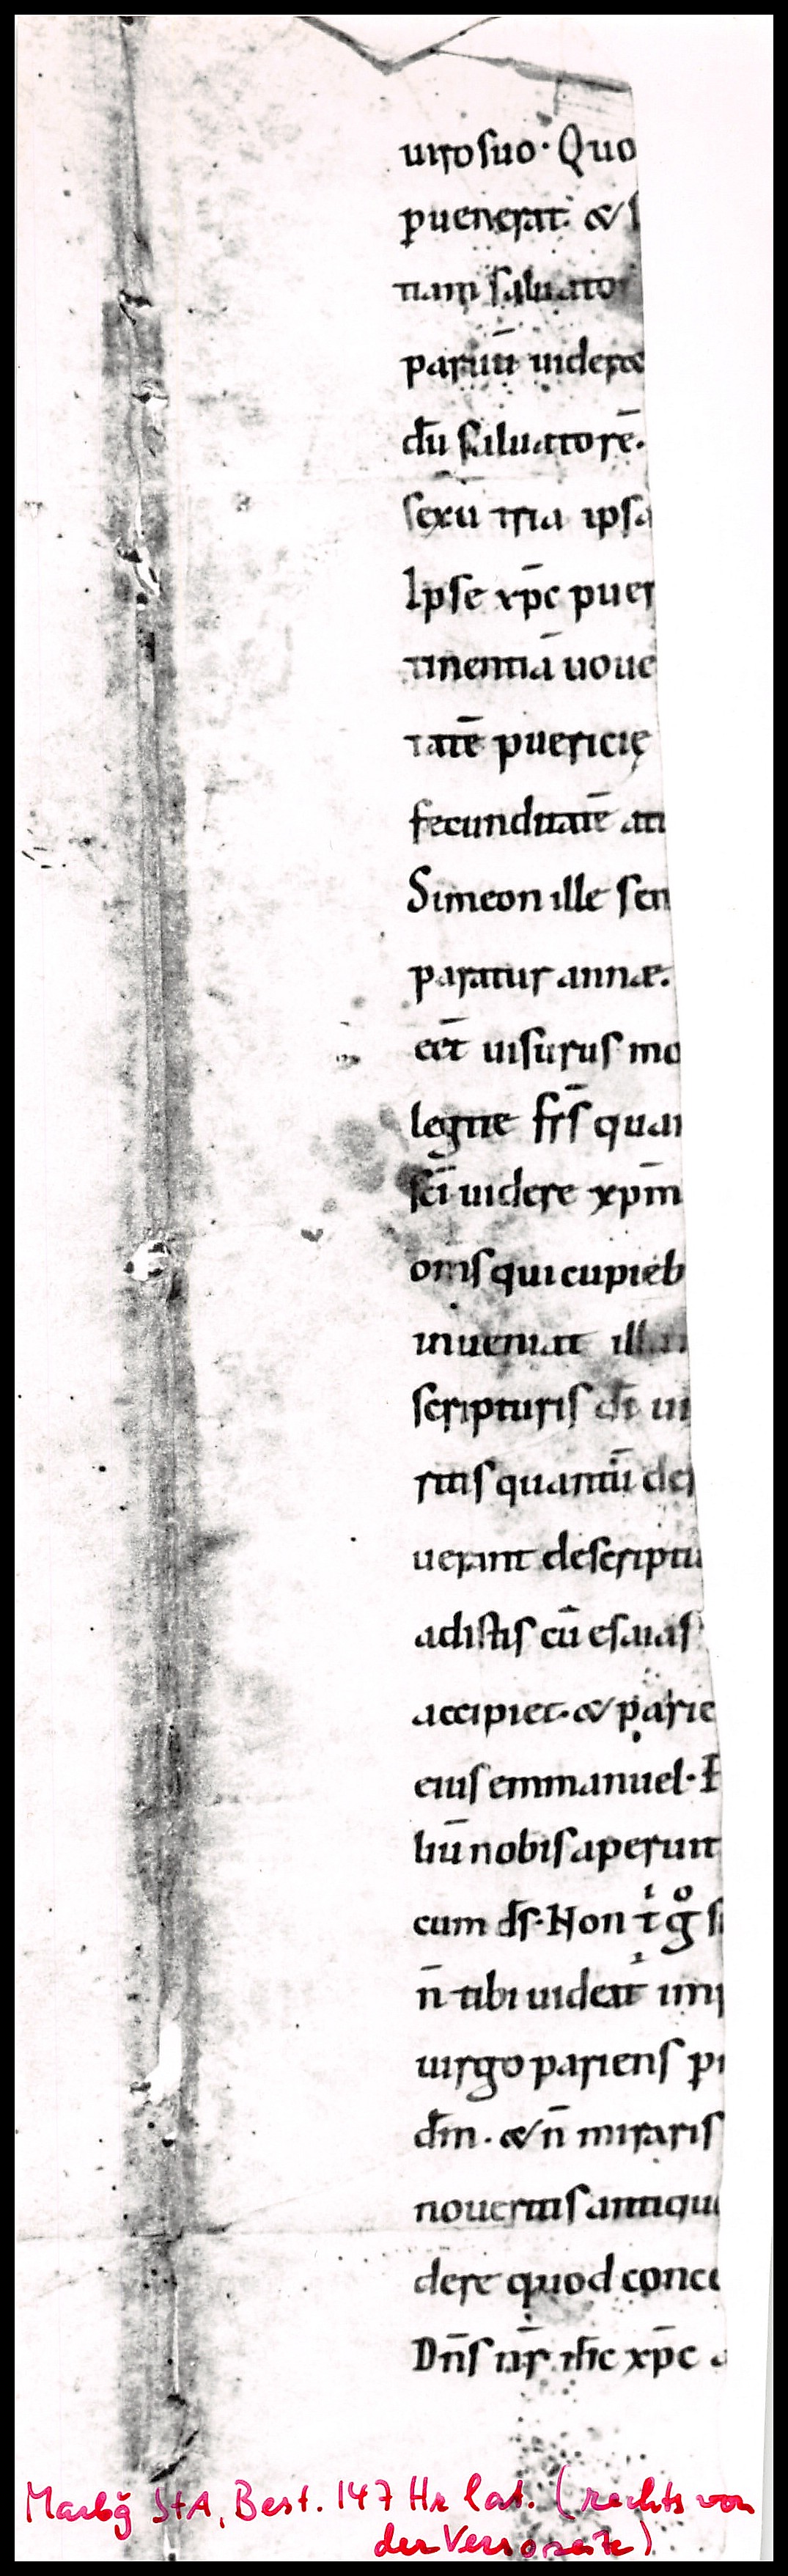 uiro suo· Quo
puenerat· & s
tiam saluator
paruū uidere
dm̄ saluatorē.
sexū tria ipsa
Ipse xp̄c puer
tinentiā uoue
tatē puericię
fecunditatē an
Simeon ille sen
paratur annæ.
eēt uisurus mo
legite fr̄s quan
sc̄i uidere xpm̄
om̄s qui cupieb
inueniat illu
scripturis dī in
ritis quantū de
uerant descriptu
adistis cū esaias
accipiet· & parie
eius emmanuel· P
liū nobis aperuit
cum ds̄· Non tͥ gͦ s
n̄ tibi uideat᷑ imp
uirgo pariens p
dm̄· & n̄ miraris
noueritis antiqu
dere quod conce
Dn̄s nr̄ ih̄c xp̄c a
Marbg̃ StA, Best. 147 Hr lat. (rechts von
der Versoseite)